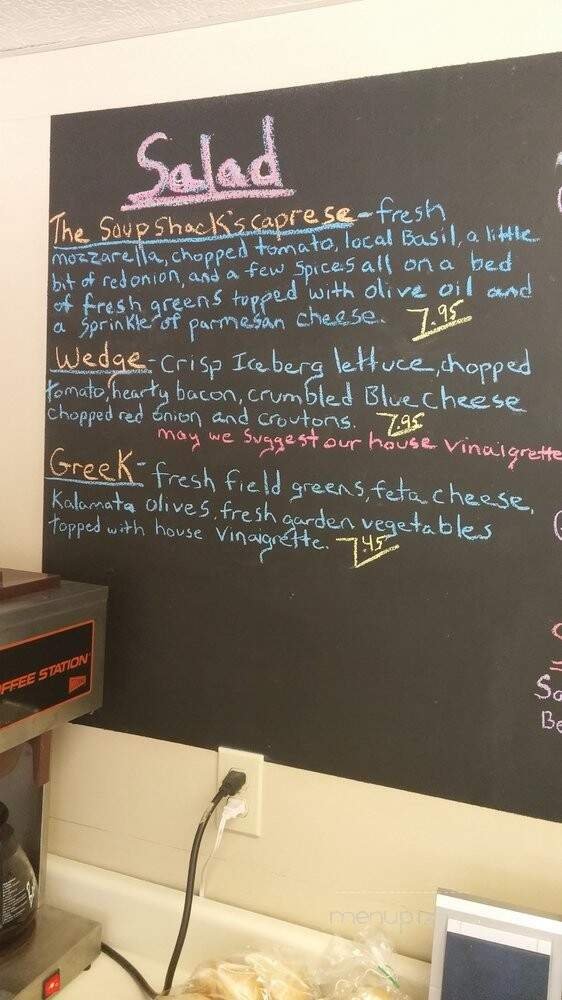 Salad
The Soup Shack's caprese - fresh
mozzarella, chopped tomato, local Basil, a little
bit of red onion, and a few spices all on a bed
of fresh greens topped with olive oil and
a sprinkle of parmesan cheese. 7.95
Wedge - Crisp Iceberg lettuce, chopped
tomato, hearty bacon, crumbled Blue Cheese
chopped red onion and croutons. 7.95
may we suggest our house vinaigrette
Greek - fresh field greens, feta cheese,
Kalamata olives, fresh garden vegetables
topped with house vinaigrette. 7.45
OFFEE STATION
Sa
Be
menup